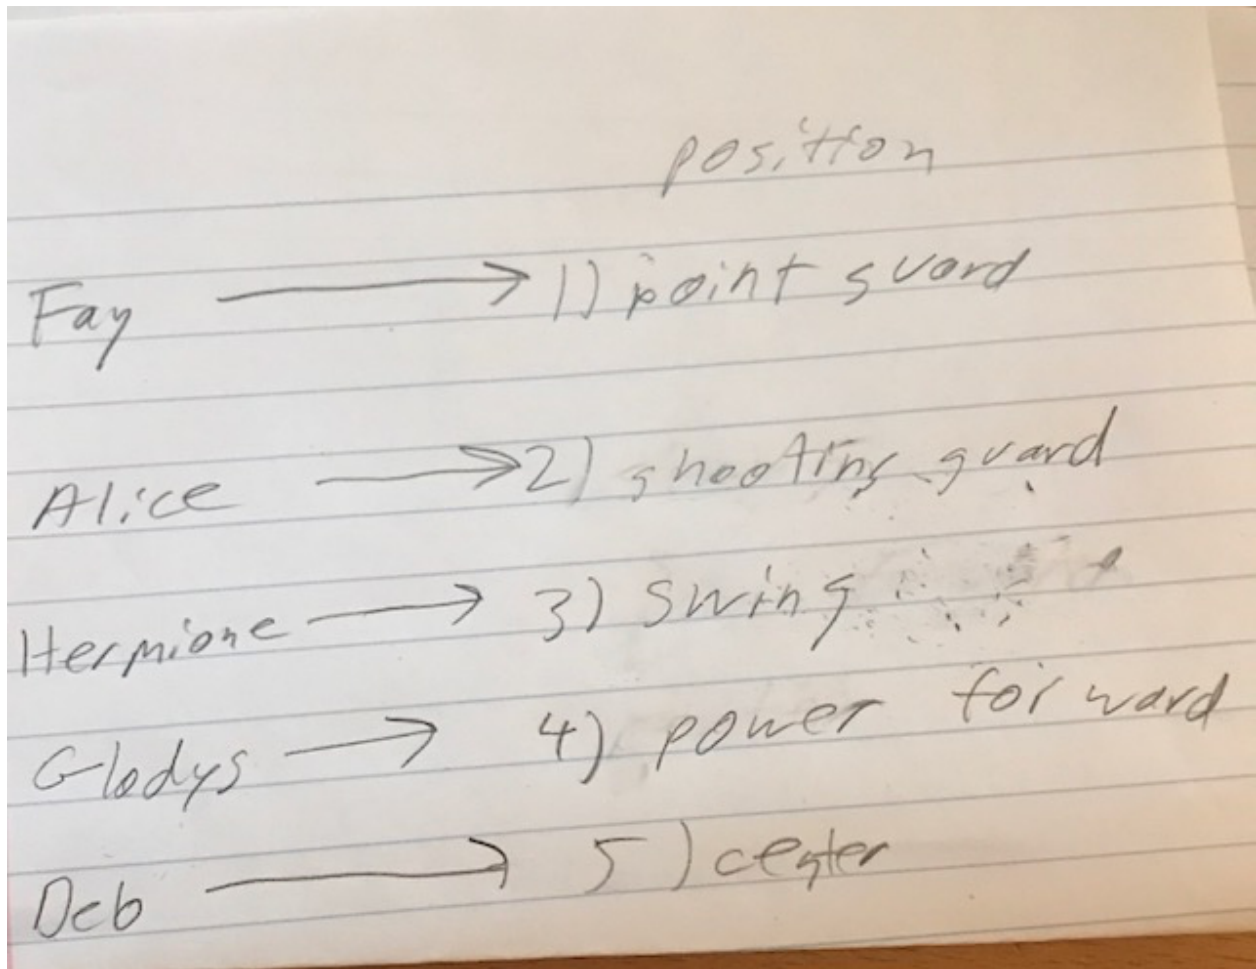 position
Fay → 1) point guard
Alice → 2) shooting guard
Hermione → 3) swing
Gladys → 4) power forward
Deb → 5) center